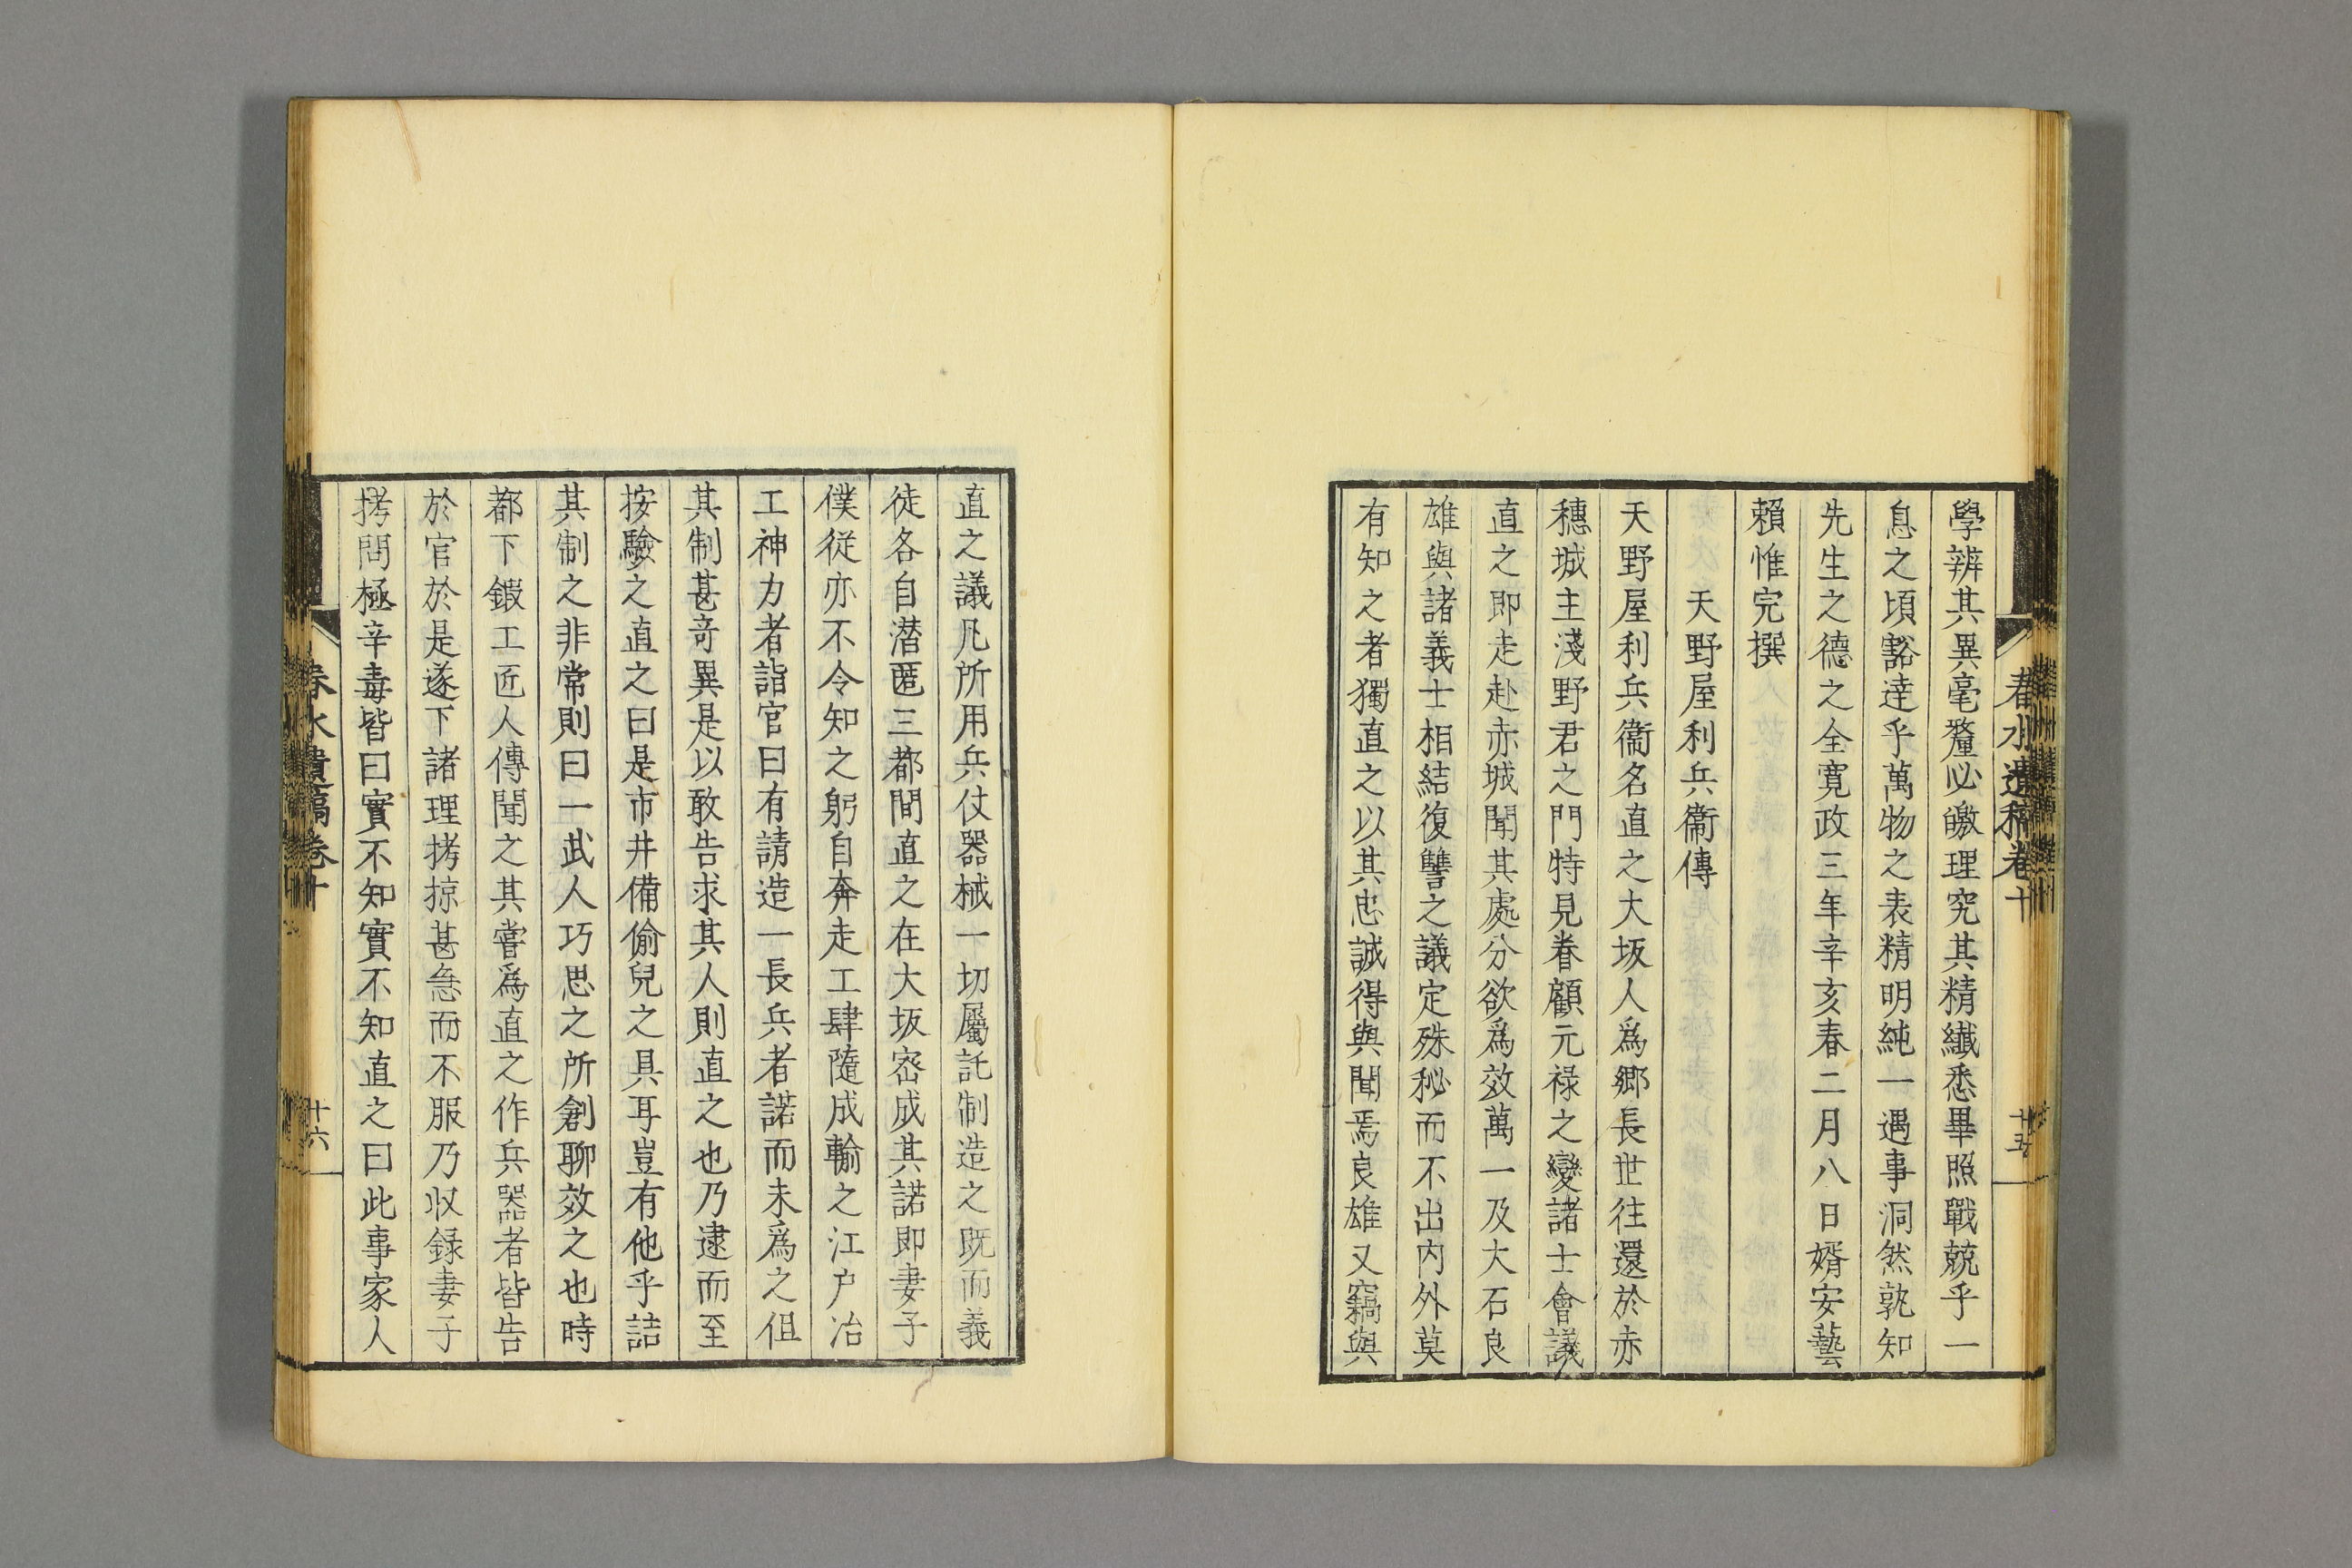 春水遺稿卷十
十五
學辨其異毫釐必皦理究其精纖悉畢照戰兢乎一
息之頃豁達乎萬物之表精明純一遇事洞然孰知
先生之德之全寛政三年辛亥春二月八日婿安藝
賴惟完撰
天野屋利兵衞傳
天野屋利兵衞名直之大坂人爲郷長世往還於赤
穗城主淺野君之門特見眷顧元禄之變諸士會議
直之即走赴赤城聞其處分欲爲效萬一及大石良
雄與諸義士相結復讐之議定殊秘而不出内外莫
有知之者獨直之以其忠誠得與聞焉良雄又竊與
直之議凡所用兵仗器械一切屬託制造之既而義
徒各自潜匿三都間直之在大坂宻成其諾即妻子
僕従亦不令知之躬自奔走工肆隨成輸之江戸冶
工神力者詣官曰有請造一長兵者諾而未爲之但
其制甚竒異是以敢告求其人則直之也乃逮而至
按驗之直之曰是市井備偷兒之具耳豈有他乎詰
其制之非常則曰一武人巧思之所創聊效之也時
都下鍛工匠人傳聞之其嘗爲直之作兵器者皆告
於官於是遂下諸理拷掠甚急而不服乃収録妻子
拷問極辛毒皆曰實不知實不知直之曰此事家人
春水遺稿卷十
十六